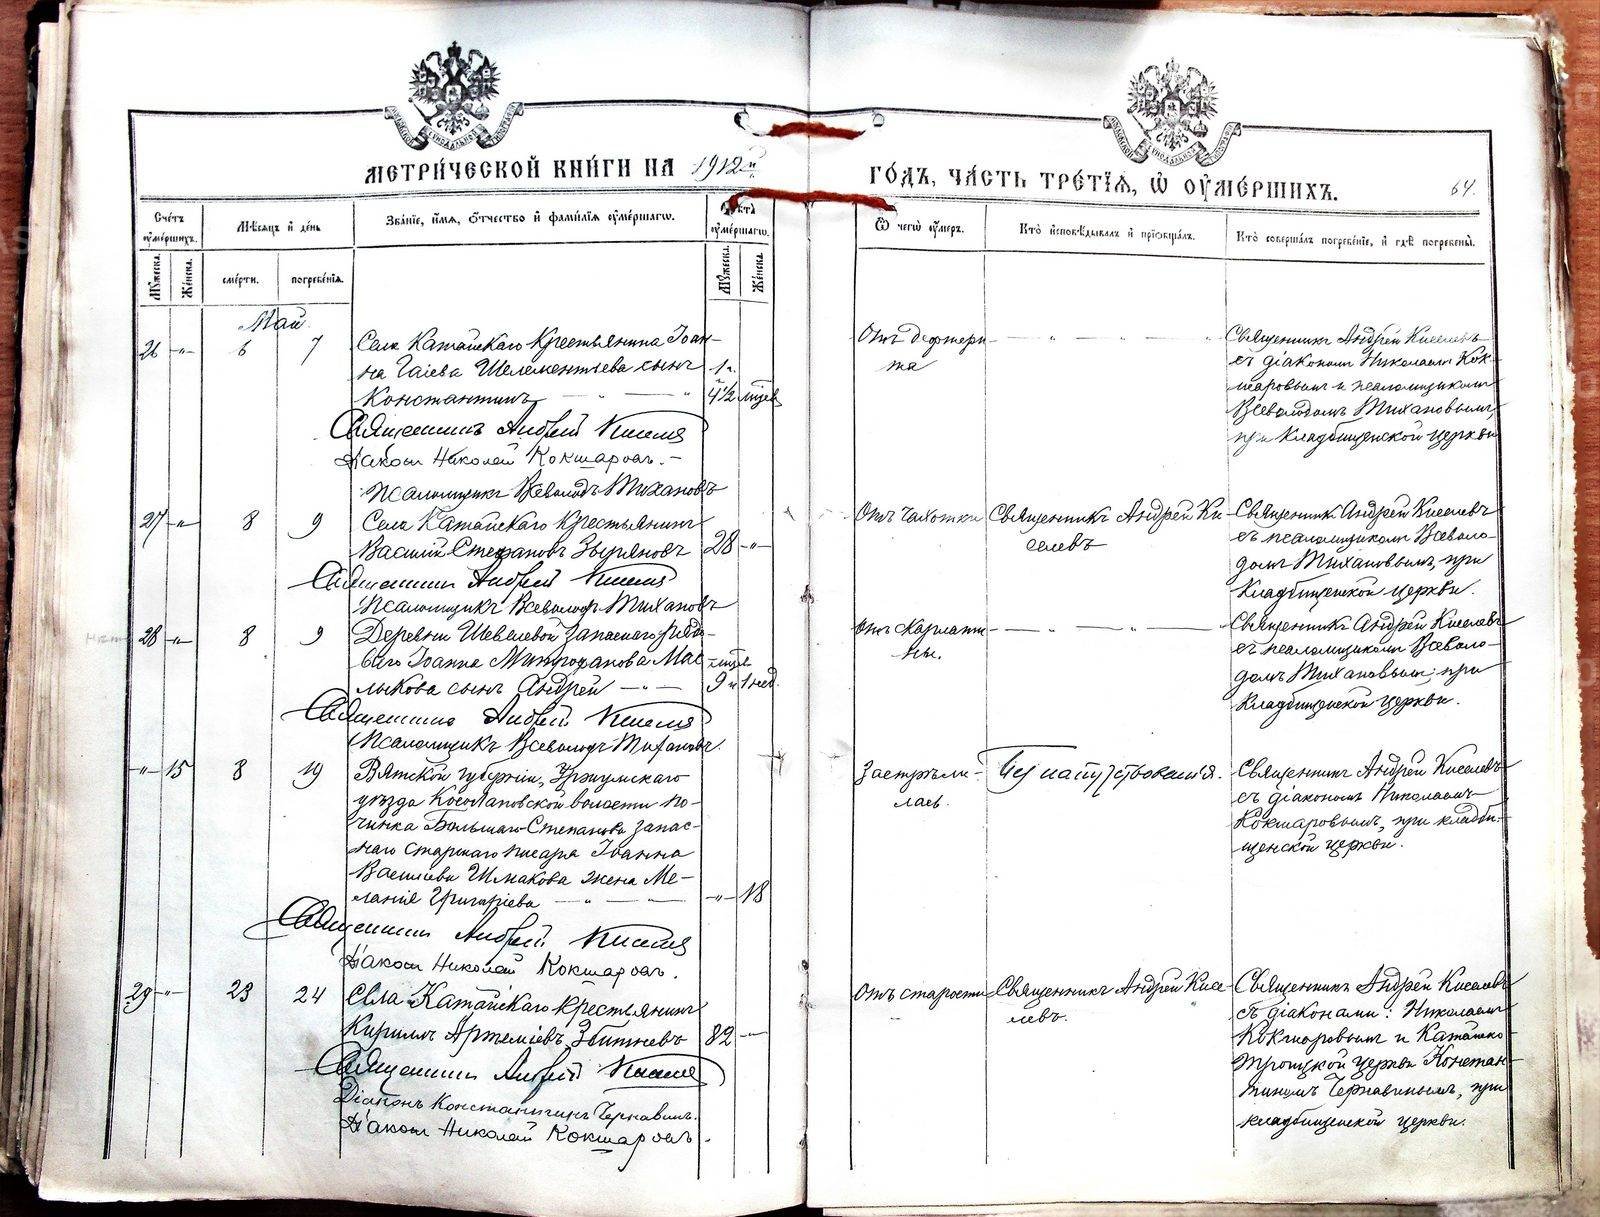 МЕТРИ́ЧЕСКОЙ КНИ́ГИ НА 1912й
ГО́ДЪ, ЧА́СТЬ ТРЕ́ТІѦ, Ѡ҆ ОУ҆МЕ́РШИХЪ.
64.
Сче́тъ оу҆ме́ршихъ.
Мѣ́сяцъ и҆ де́нь
Зва́нїе, и҆́мѧ, ѻ҆́тчество и҆ фами́лїѧ оу҆ме́ршагѡ.
Лѣ́та оу҆ме́ршагѡ.
Ѿ чегѡ̀ оу҆́меръ.
Кто̀ и҆сповѣ́дывалъ и҆ прїѡбща́лъ.
Кто̀ соверша́лъ погребе́нїе, и҆ гдѣ̀ погребены̀.
Мꙋ́жеска.
Же́нска.
сме́рти.
погребе́нїѧ.
Мꙋ́жеска.
Же́нска.
Май.
26 -„- 6 7
Села Катайскаго Крестьянина Іоан-
на Гаіева Шелементьева сынъ 1 г.
Константинъ — „ — „ 4½ мѣсяц
Священникъ Андрей Киселев
Діаконъ Николай Кокшаровъ.-
Псаломщикъ Всеволодъ Тихановъ
Отъ дефтери-
та
Священникъ Андрей Киселевъ
съ діакономъ Николаемъ Кок-
шаровымъ и псаломщикомъ
Всеволодомъ Тихановымъ,
при кладбищенской церкви
27 -„- 8 9
Села Катайскаго Крестьянинъ
Василій Стефановъ Зыряновъ 28 -„-
Священникъ Андрей Киселев
Псаломщикъ Всеволодъ Тихановъ
Отъ чахотки
Священникъ Андрей Ки-
селевъ
Священникъ Андрей Киселевъ
съ псаломщикомъ Всеволо-
домъ Тихановымъ, при
кладбищенской церкви.
28 -„- 8 9
Деревни Шевелевой запаснаго рядо-
ваго Іоанна Митрофанова Мас-
лыкова сынъ Андрей — „ — 9 и 1 нед.
Священникъ Андрей Киселев
Псаломщикъ Всеволодъ Тихановъ.
Отъ Карлати-
ны.
Священникъ Андрей Киселевъ
съ псаломщикомъ Всеволо-
домъ Тихановымъ, при
кладбищенской церкви.
-„- 15 8 19
Вятской губерніи, Уржумскаго
уѣзда Косолаповской волости по-
чинка Большаго-Степанова запас-
наго старшаго писаря Іоанна
Василіева Шмакова жена Ме-
ланія Григоріева — „ — -„- 18
Священникъ Андрей Киселев
Діаконъ Николай Кокшаровъ.
Застрѣли-
лась.
Безъ напутствованія.
Священникъ Андрей Киселевъ
съ діакономъ Николаемъ
Кокшаровымъ, при кладби-
щенской церкви.
29 -„- 23 24
Села Катайскаго крестьянинъ
Кириллъ Артеміевъ Збитневъ 82 -„-
Священникъ Андрей Киселев
Діаконъ Константинъ Чернавинъ.
Діаконъ Николай Кокшаровъ.
Отъ старости
Священникъ Андрей Кисе-
левъ.
Священникъ Андрей Киселевъ
съ діаконами: Николаемъ
Кокшаровымъ и Катайско-
Троицкой церкви Констан-
тиномъ Чернавинымъ, при
кладбищенской церкви.